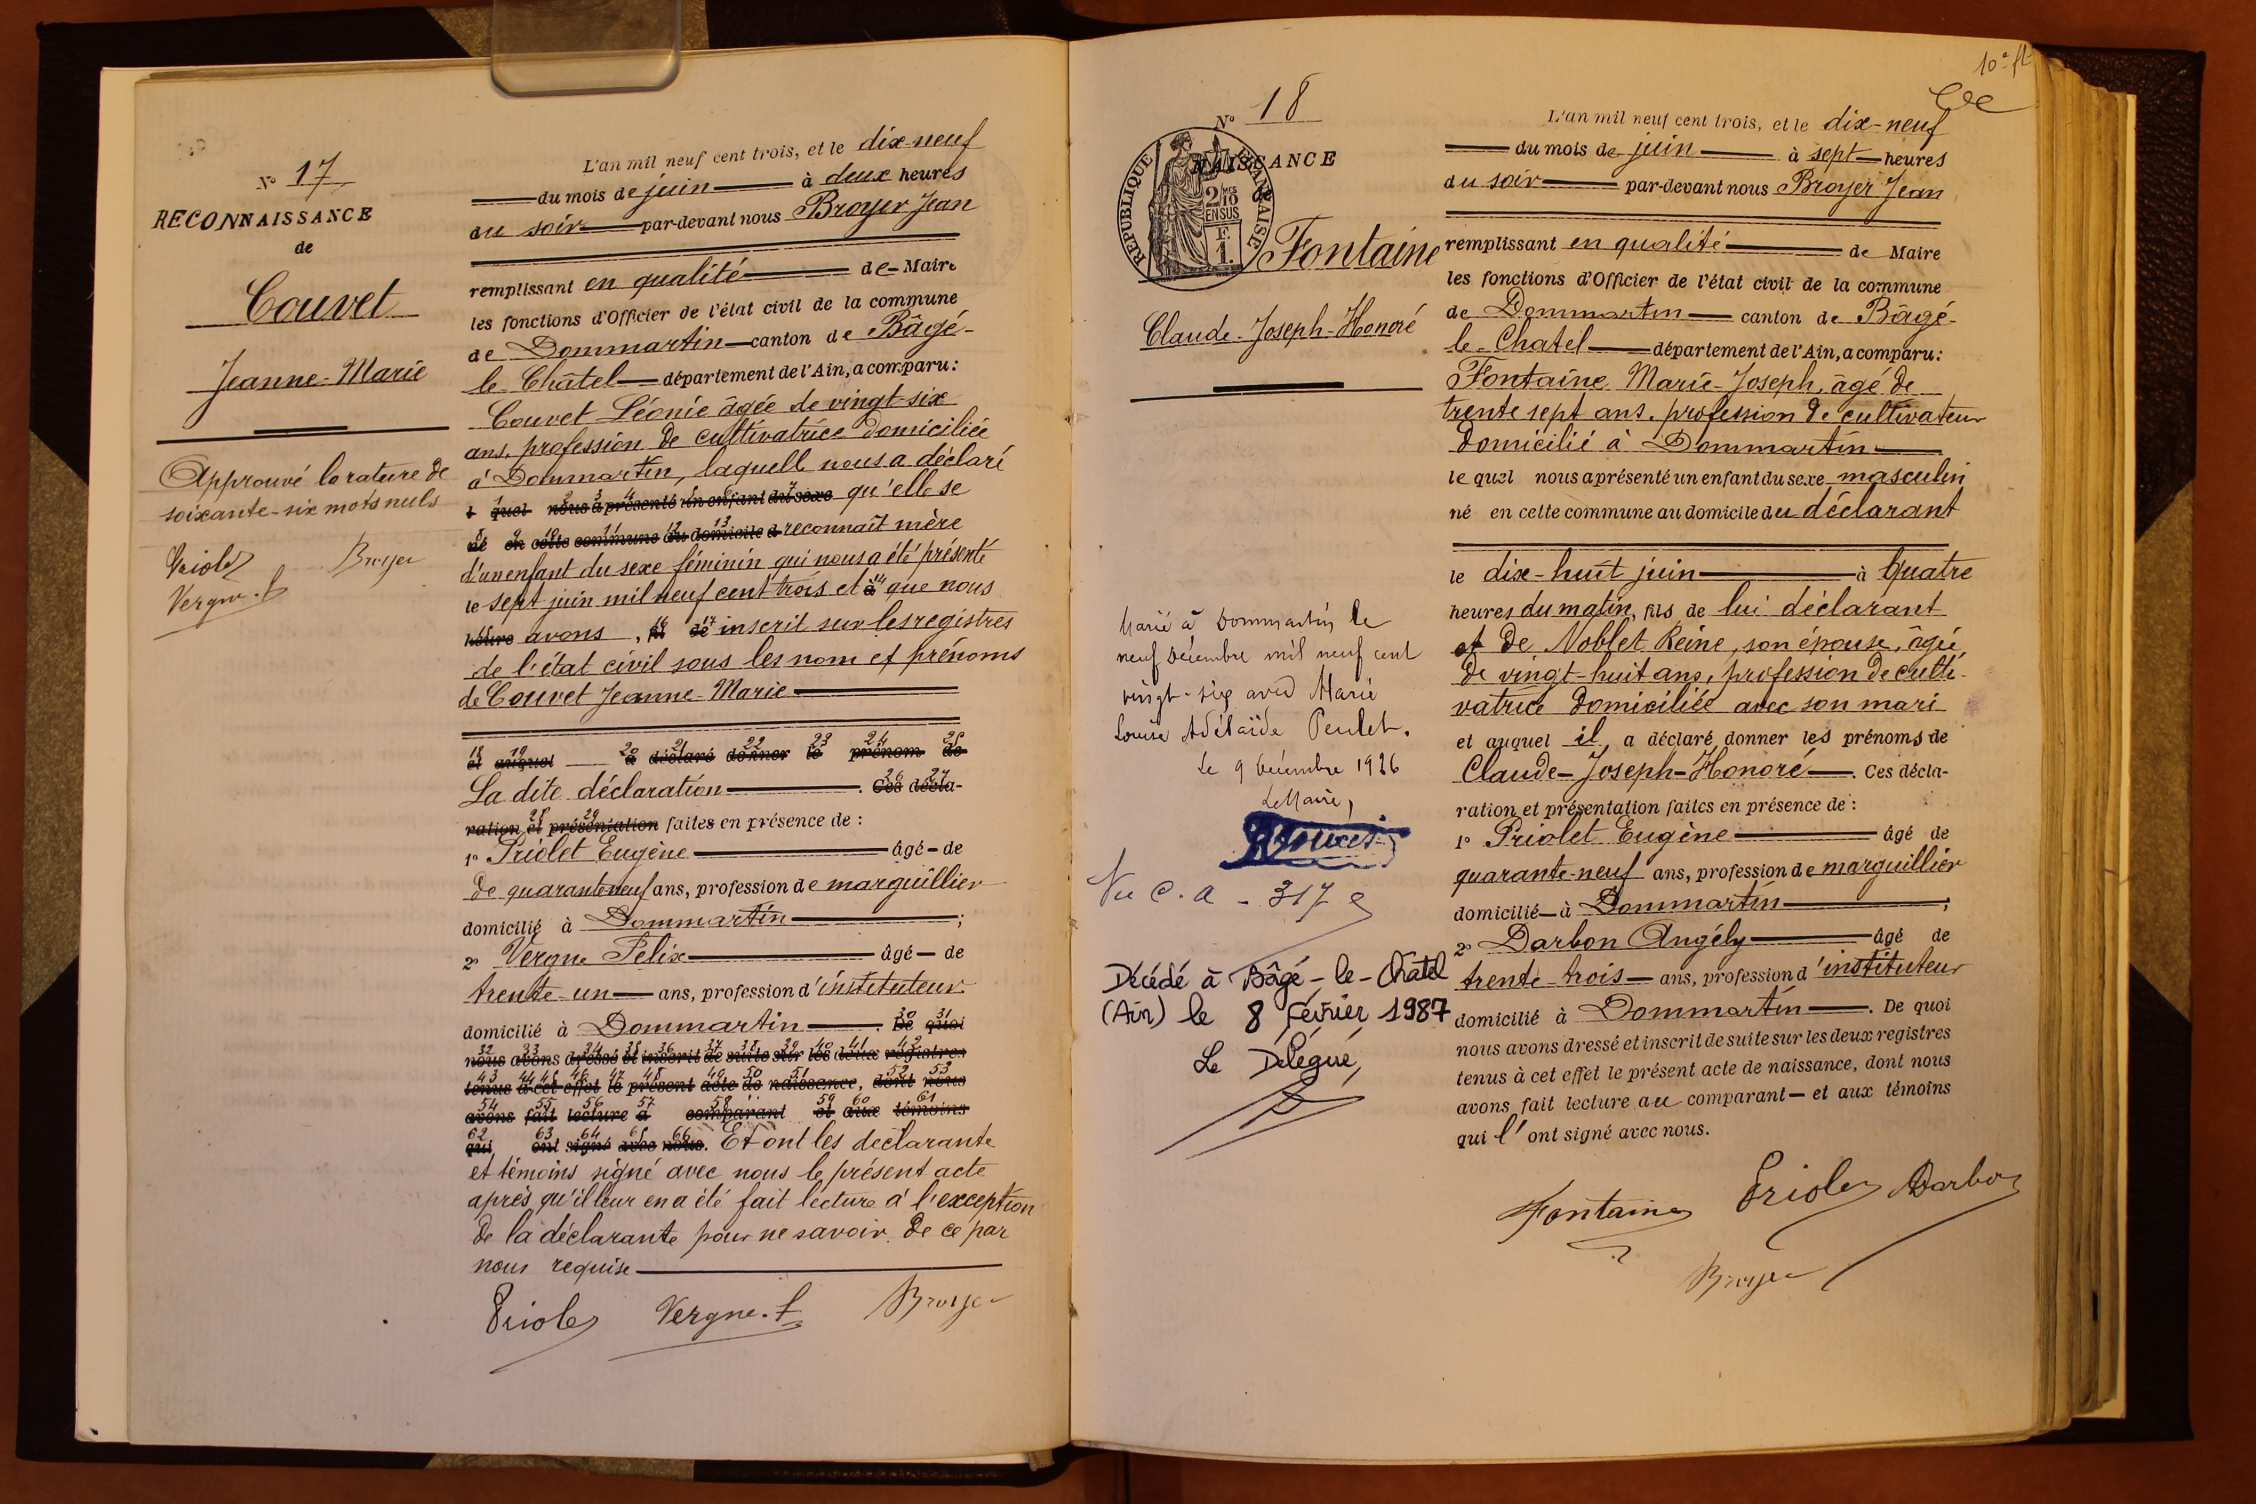 N° 17
RECONNAISSANCE
de
Couvet
Jeanne-Marie
Approuvé la rature de
soixante-six mots nuls
Priolet Broyer
Vergne. f
L'an mil neuf cent trois, et le dix-neuf
du mois de juin à deux heures
du soir par-devant nous Broyer Jean
remplissant en qualité de Maire
les fonctions d'Officier de l'état civil de la commune
de Dommartin canton de Bâgé-
le-Châtel département de l'Ain, a comparu:
Couvet Léonie âgée de vingt-six
ans, profession de cultivatrice domiciliée
à Dommartin, laquelle nous a déclaré
1 2 3 4 5 6 7
l quel nous a présenté un enfant du sexe qu'elle se
8 9 10 11 12 13
né en cette commune au domicile d reconnait mère
d'un enfant du sexe féminin qui nous a été présenté
le sept juin mil neuf cent trois et à que nous
heure avons, fil de inscrit sur les registres
de l'état civil sous les nom et prénoms
de Couvet Jeanne-Marie
18 19 20 21 22 23 24 25
et auquel a déclaré donner le prénom de
La dite déclaration . Ces décla-
ration et présentation faites en présence de :
1° Priolet Eugène âgé de
de quarante-neuf ans, profession de marguillier
domicilié à Dommartin ;
2° Vergne Félix âgé de
trente-un ans, profession d'instituteur
domicilié à Dommartin . De quoi
32 33 34 35 36 37 38 39 40 41 42
nous avons dressé et inscrit de suite sur les deux registres
43 44 45 46 47 48 49 50 51 52 53
tenus à cet effet le présent acte de naissance, dont nous
54 55 56 57 58 59 60 61
avons fait lecture à comparant et aux témoins
62 63 64 65 66
qui ont signé avec nous. Et ont les déclarante
et témoins signé avec nous le présent acte
après qu'il leur en a été fait lecture à l'exception
de la déclarante pour ne savoir. De ce par
nous requise
Priolet Vergne. f Broyer
10e ft
N° 18
NAISSANCE
REPUBLIQUE FRANÇAISE
2/10 MES
EN SUS
F.
1.
Fontaine
Claude-Joseph-Honoré
Marié à Dommartin le
neuf Décembre mil neuf cent
vingt-six avec Marie
Louise Adélaïde Penlet.
Le 9 Décembre 1926
Le Maire,
Vu C. a - 317
Décédé à Bâgé-le-Châtel
(Ain) le 8 Février 1987
Le Délégué,
L'an mil neuf cent trois, et le dix-neuf
du mois de juin à sept heures
du soir par-devant nous Broyer Jean
remplissant en qualité de Maire
les fonctions d'Officier de l'état civil de la commune
de Dommartin canton de Bâgé-
le-Chatel département de l'Ain, a comparu:
Fontaine Marie-Joseph, âgé de
trente sept ans, profession de cultivateur
domicilié à Dommartin
le quel nous a présenté un enfant du sexe masculin
né en cette commune au domicile du déclarant
le dix-huit juin à Quatre
heures du matin, fils de lui déclarant
et de Noblet Reine, son épouse, âgée
de vingt-huit ans, profession de culti-
vatrice domiciliée avec son mari
et auquel il a déclaré donner les prénoms de
Claude-Joseph-Honoré . Ces décla-
ration et présentation faites en présence de :
1° Priolet Eugène âgé de
quarante-neuf ans, profession de marguillier
domicilié à Dommartin ;
2° Darbon Angély âgé de
trente-trois ans, profession d'instituteur
domicilié à Dommartin . De quoi
nous avons dressé et inscrit de suite sur les deux registres
tenus à cet effet le présent acte de naissance, dont nous
avons fait lecture au comparant et aux témoins
qui l'ont signé avec nous.
Fontaine Priolet Darbon
Broyer